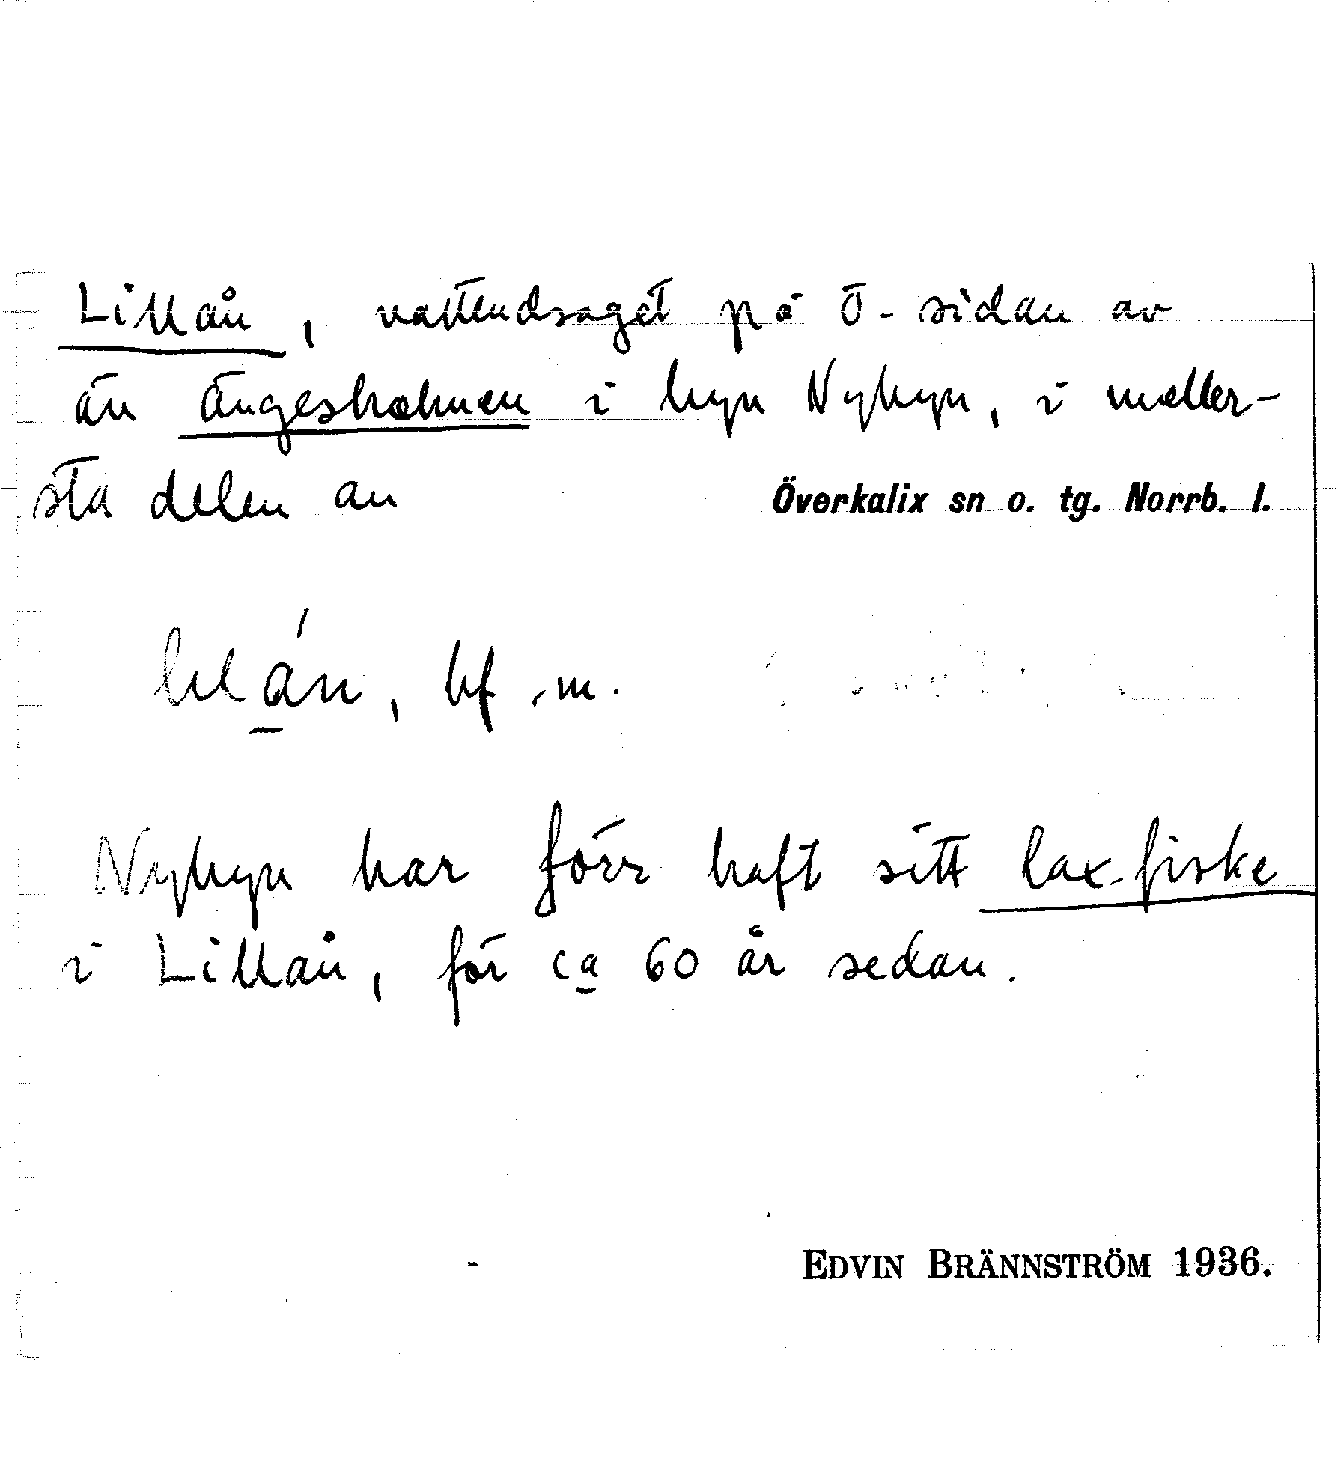 Lillån, vattendraget på Ö-sidan av
ön Ängesholmen i byn Nybyn, i meller-
sta delen av Överkalix sn o. tg. Norrb. l.
bf. m.
Nybyn har förr haft sitt lax-fiske
i Lillån, för ca 60 år sedan.
EDVIN BRÄNNSTRÖM 1936.